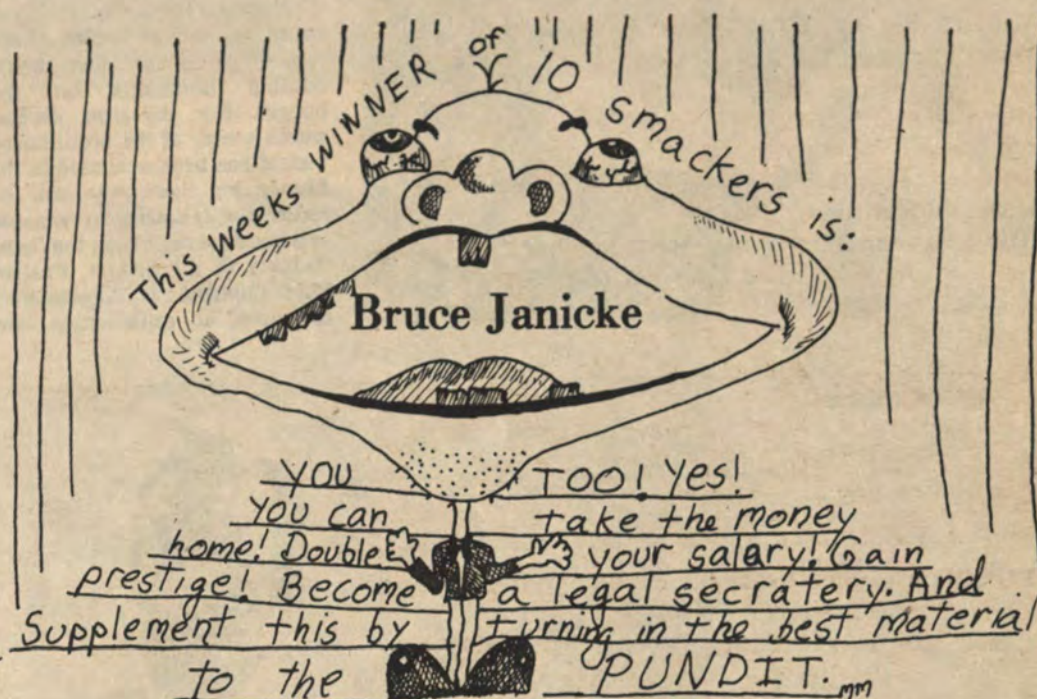 This weeks WINNER of 10 smackers is:
Bruce Janicke
you TOO! Yes!
you can take the money
home! Double your salary! Gain
prestige! Become a legal secratery. And
Supplement this by turning in the best material
to the PUNDIT.
mm